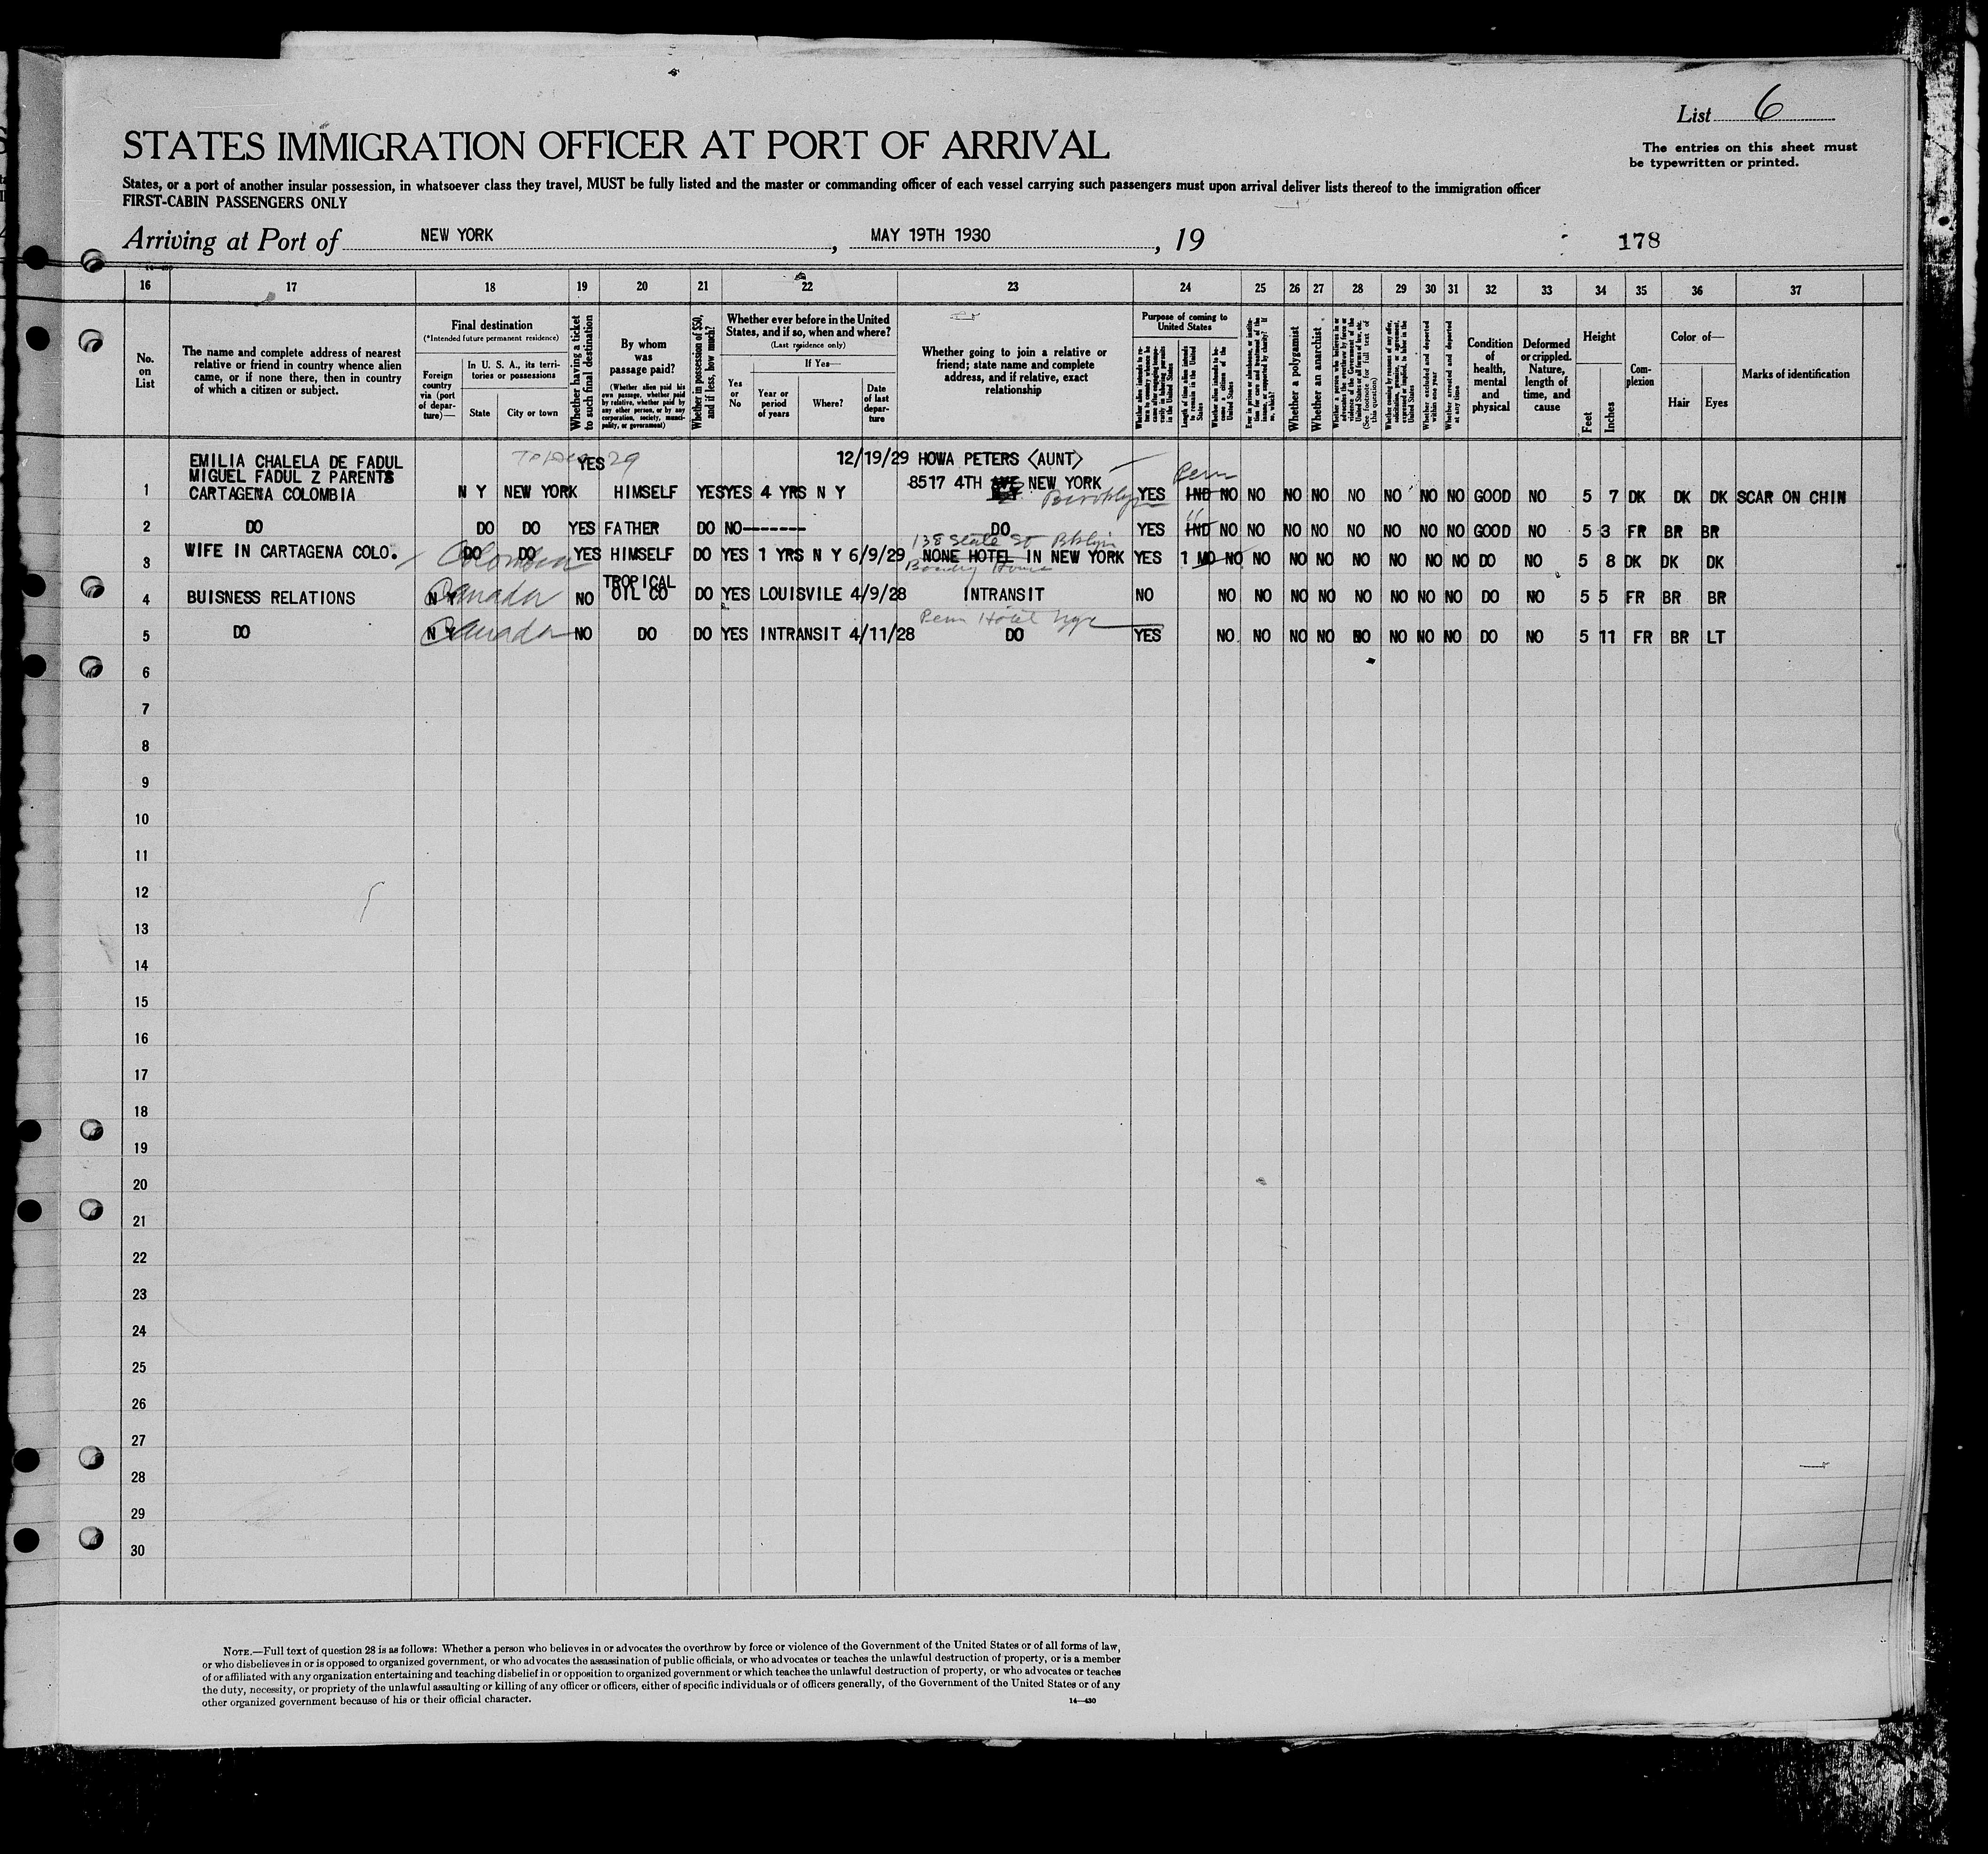 List 6
STATES IMMIGRATION OFFICER AT PORT OF ARRIVAL
The entries on this sheet must
be typewritten or printed.
States, or a port of another insular possession, in whatsoever class they travel, MUST be fully listed and the master or commanding officer of each vessel carrying such passengers must upon arrival deliver lists thereof to the immigration officer
FIRST-CABIN PASSENGERS ONLY
Arriving at Port of NEW YORK, MAY 19TH 1930, 19
178
16 17 18 19 20 21 22 23 24 25 26 27 28 29 30 31 32 33 34 35 36 37
No. on List
The name and complete address of nearest
relative or friend in country whence alien
came, or if none there, then in country
of which a citizen or subject.
Final destination
(*Intended future permanent residence)
Foreign country via (port of departure)—
In U. S. A., its territories or possessions
State
City or town
Whether having a ticket to such final destination
By whom was passage paid?
(Whether alien paid his own passage, whether paid by relative, whether paid by any other person, or by any corporation, society, municipality, or government)
Whether in possession of $50, and if less, how much?
Whether ever before in the United States, and if so, when and where?
(Last residence only)
Yes or No
If Yes—
Year or period of years
Where?
Date of last departure
Whether going to join a relative or
friend; state name and complete
address, and if relative, exact
relationship
Purpose of coming to United States
Length of time alien intends to remain in the United States
Whether alien intends to become a citizen of the United States
Whether a polygamist
Whether an anarchist
(See footnote for full text of this question)
Whether excluded and deported within one year
Whether arrested and deported at any time
Condition of health, mental and physical
Deformed or crippled. Nature, length of time, and cause
Height
Feet
Inches
Complexion
Color of—
Hair
Eyes
Marks of identification
EMILIA CHALELA DE FADUL YES 29 12/19/29 HOWA PETERS (AUNT)
MIGUEL FADUL Z PARENTS 8517 4TH AVE NEW YORK Penn
1 CARTAGENA COLOMBIA N Y NEW YORK HIMSELF YES YES 4 YRS N Y Brooklyn YES IND NO NO NO NO NO NO NO NO GOOD NO 5 7 DK DK DK SCAR ON CHIN
2 DO DO DO YES FATHER DO NO------- DO YES IND NO NO NO NO NO NO NO NO GOOD NO 5 3 FR BR BR
138 State St Bklyn
3 WIFE IN CARTAGENA COLO. Colombia DO DO YES HIMSELF DO YES 1 YRS N Y 6/9/29 NONE HOTEL IN NEW YORK YES 1 MO NO NO NO NO NO NO NO NO DO NO 5 8 DK DK DK
TROPICAL
4 BUISNESS RELATIONS N Y Canada NO OIL CO DO YES LOUISVILE 4/9/28 INTRANSIT NO NO NO NO NO NO NO NO NO DO NO 5 5 FR BR BR
Penn Hotel nyc
5 DO N Y Canada NO DO DO YES INTRANSIT 4/11/28 DO YES NO NO NO NO NO NO NO NO DO NO 5 11 FR BR LT
6
7
8
9
10
11
12
13
14
15
16
17
18
19
20
21
22
23
24
25
26
27
28
29
30
NOTE.—Full text of question 28 is as follows: Whether a person who believes in or advocates the overthrow by force or violence of the Government of the United States or of all forms of law,
or who disbelieves in or is opposed to organized government, or who advocates the assassination of public officials, or who advocates or teaches the unlawful destruction of property, or is a member
of or affiliated with any organization entertaining and teaching disbelief in or opposition to organized government or which teaches the unlawful destruction of property, or who advocates or teaches
the duty, necessity, or propriety of the unlawful assaulting or killing of any officer or officers, either of specific individuals or of officers generally, of the Government of the United States or of any
other organized government because of his or their official character.
14—430